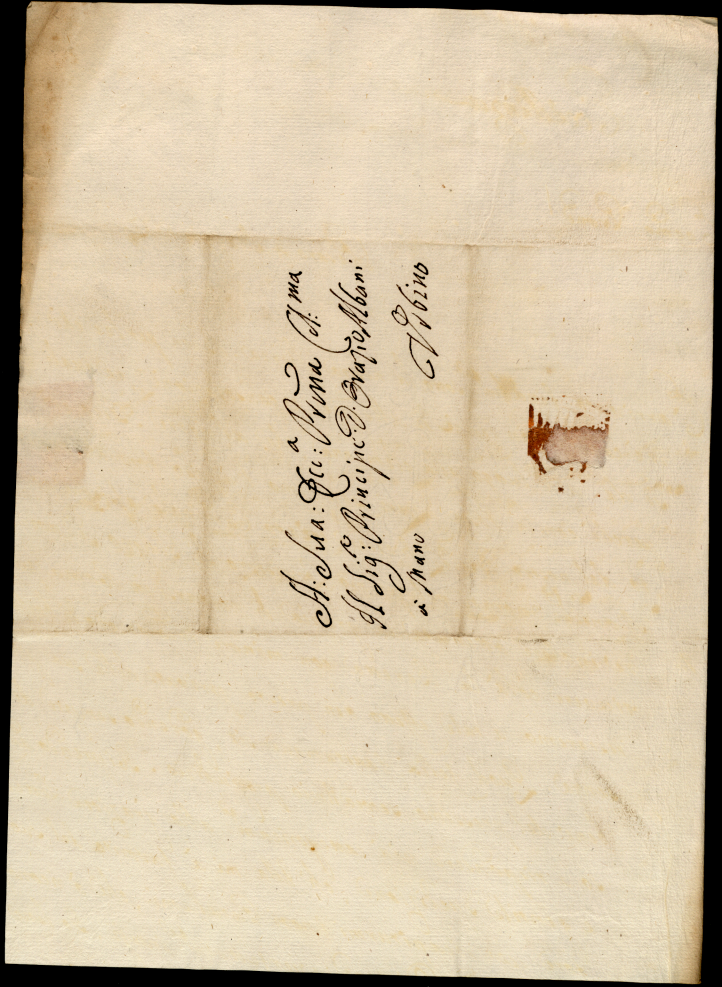 A: Sua: Ecc:ª Prōna Col:ma
Il Sig:re Principe D. Orazio Albani
à mano Vrbino